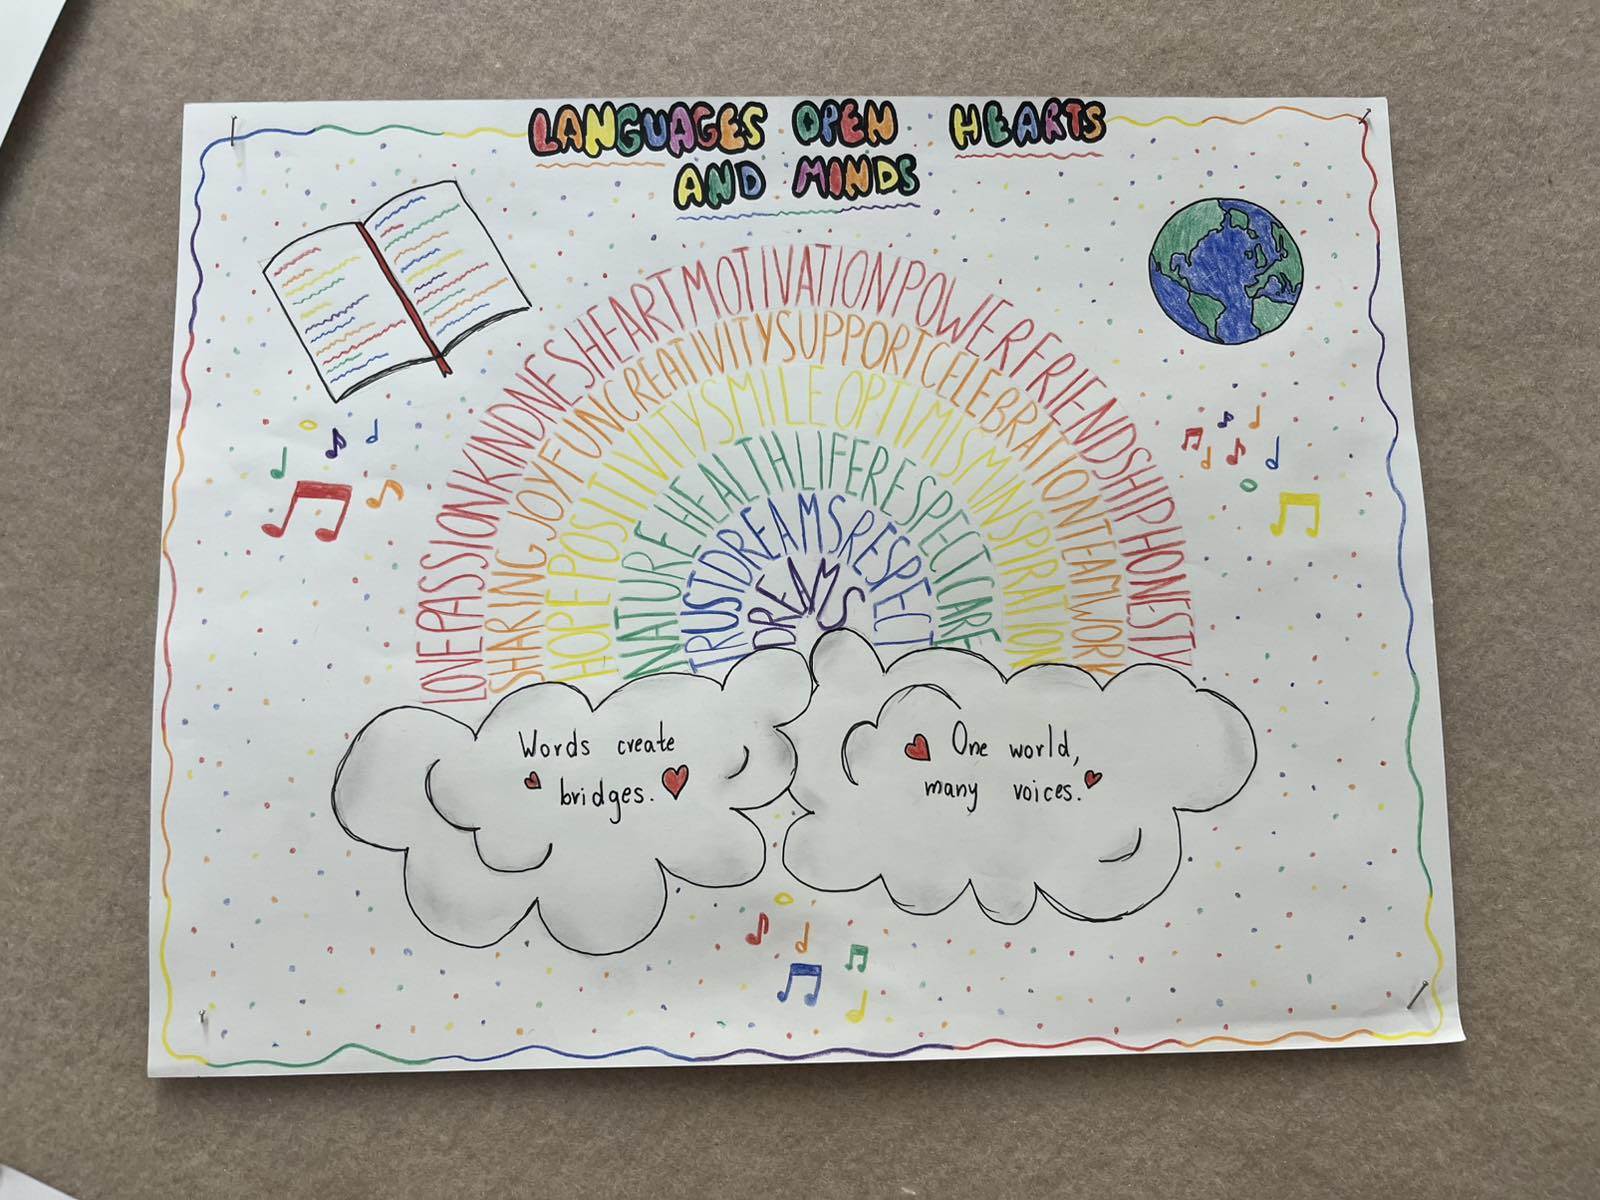 LANGUAGES OPEN HEARTS
AND MINDS
LOVEPASSIONKINDNESHEARTMOTIVATIONPOWERFRIENDSHIPHONESTY
SHARINGJOYFUNCREATIVITYSUPPORTCELEBRATIONTEAMWORK
HOPEPOSITIVITYSMILEOPTIMISMINSPIRATION
NATUREHEALTHLIFERESPECTCARE
TRUSTDREAMSRESPECT
DREAMS
Words create
bridges.
One world,
many voices.